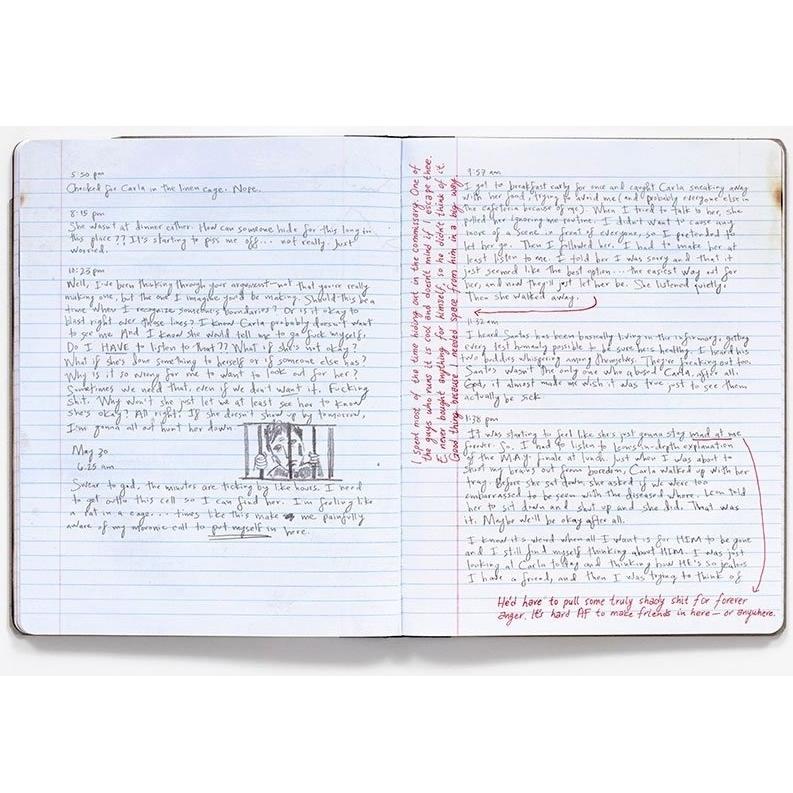 5:50 pm
Checked for Carla in the linen cage. Nope.
8:15 pm
She wasn't at dinner either. How can someone hide for this long in
this place?? It's starting to piss me off... not really. Just
worried.
10:23 pm
Well, I've been thinking through your argument—not that you're really
making one, but the one I imagine you'd be making. Should this be a
time when I recognize someone's boundaries? Or is it okay to
blast right over those lines? I know Carla probably doesn't want
to see me. And I know she would tell me to go fuck myself.
Do I HAVE to listen to that?? What if she's not okay?
What if she's done something to herself or if someone else has?
Why is it so wrong for me to want to look out for her?
Sometimes we need that, even if we don't want it. Fucking
shit. Why won't she just let we at least see her to know
she's okay? All right. If she doesn't show up by tomorrow,
I'm gonna all out hunt her down.
May 30
6:25 am
Swear to god, the minutes are ticking by like hours. I need
to get outta this cell so I can find her. I'm feeling like
a rat in a cage... times like this make me painfully
aware of my moronic call to put myself in here.
I spend most of the time hiding out in the commissary. One of
the guys who runs it is cool and doesn't mind if I escape there.
E never bought anything for himself, so he didn't think of it.
Good thing because I needed space from him in a big way.
9:57 am
I got to breakfast early for one and caught Carla sneaking away
with her food, trying to avoid me (and probably everyone else in
the cafeteria because of gc). When I tried to talk to her, she
pulled her ignoring me routine. I didn't want to cause any
more of a scene in front of everyone, so I pretended to
let her go. Then I followed her. I had to make her at
least listen to me. I told her I was sorry and that it
just seemed like the best option.... the easiest way out for
her, and now they'll just let her be. She listened quietly.
Then she walked away.
11:32 am
I heard Santos has been basically living in the infirmary, getting
every test humanly possible to be sure he's healthy. I heard his
two buddies whispering among themselves. They're freaking out too.
Santos wasn't the only one who abused Carla, after all.
God, it almost made me wish it was true just to see them
actually be sick
1:38 pm
It was starting to feel like she's just gonna stay mad at me
forever. So, I had to listen to Leon's in-depth explanation
of the MAY finale at lunch. Just when I was about to
short my brains out from boredom, Carla walked up with her
tray. Before she sat down, she asked if we were too
embarrassed to be seen with the diseased whore. Leon told
her to sit down and shut up and she did. That was
it. Maybe we'll be okay after all.
I know it's weird when all I want is for HIM to be gone
and I still find myself thinking about HIM. I was just
looking at Carla today and thinking how HE's so jealous
I have a friend, and then I was trying to think of
He'd have to pull some truly shady shit for forever
anger. It's hard AF to make friends in here — or anywhere.